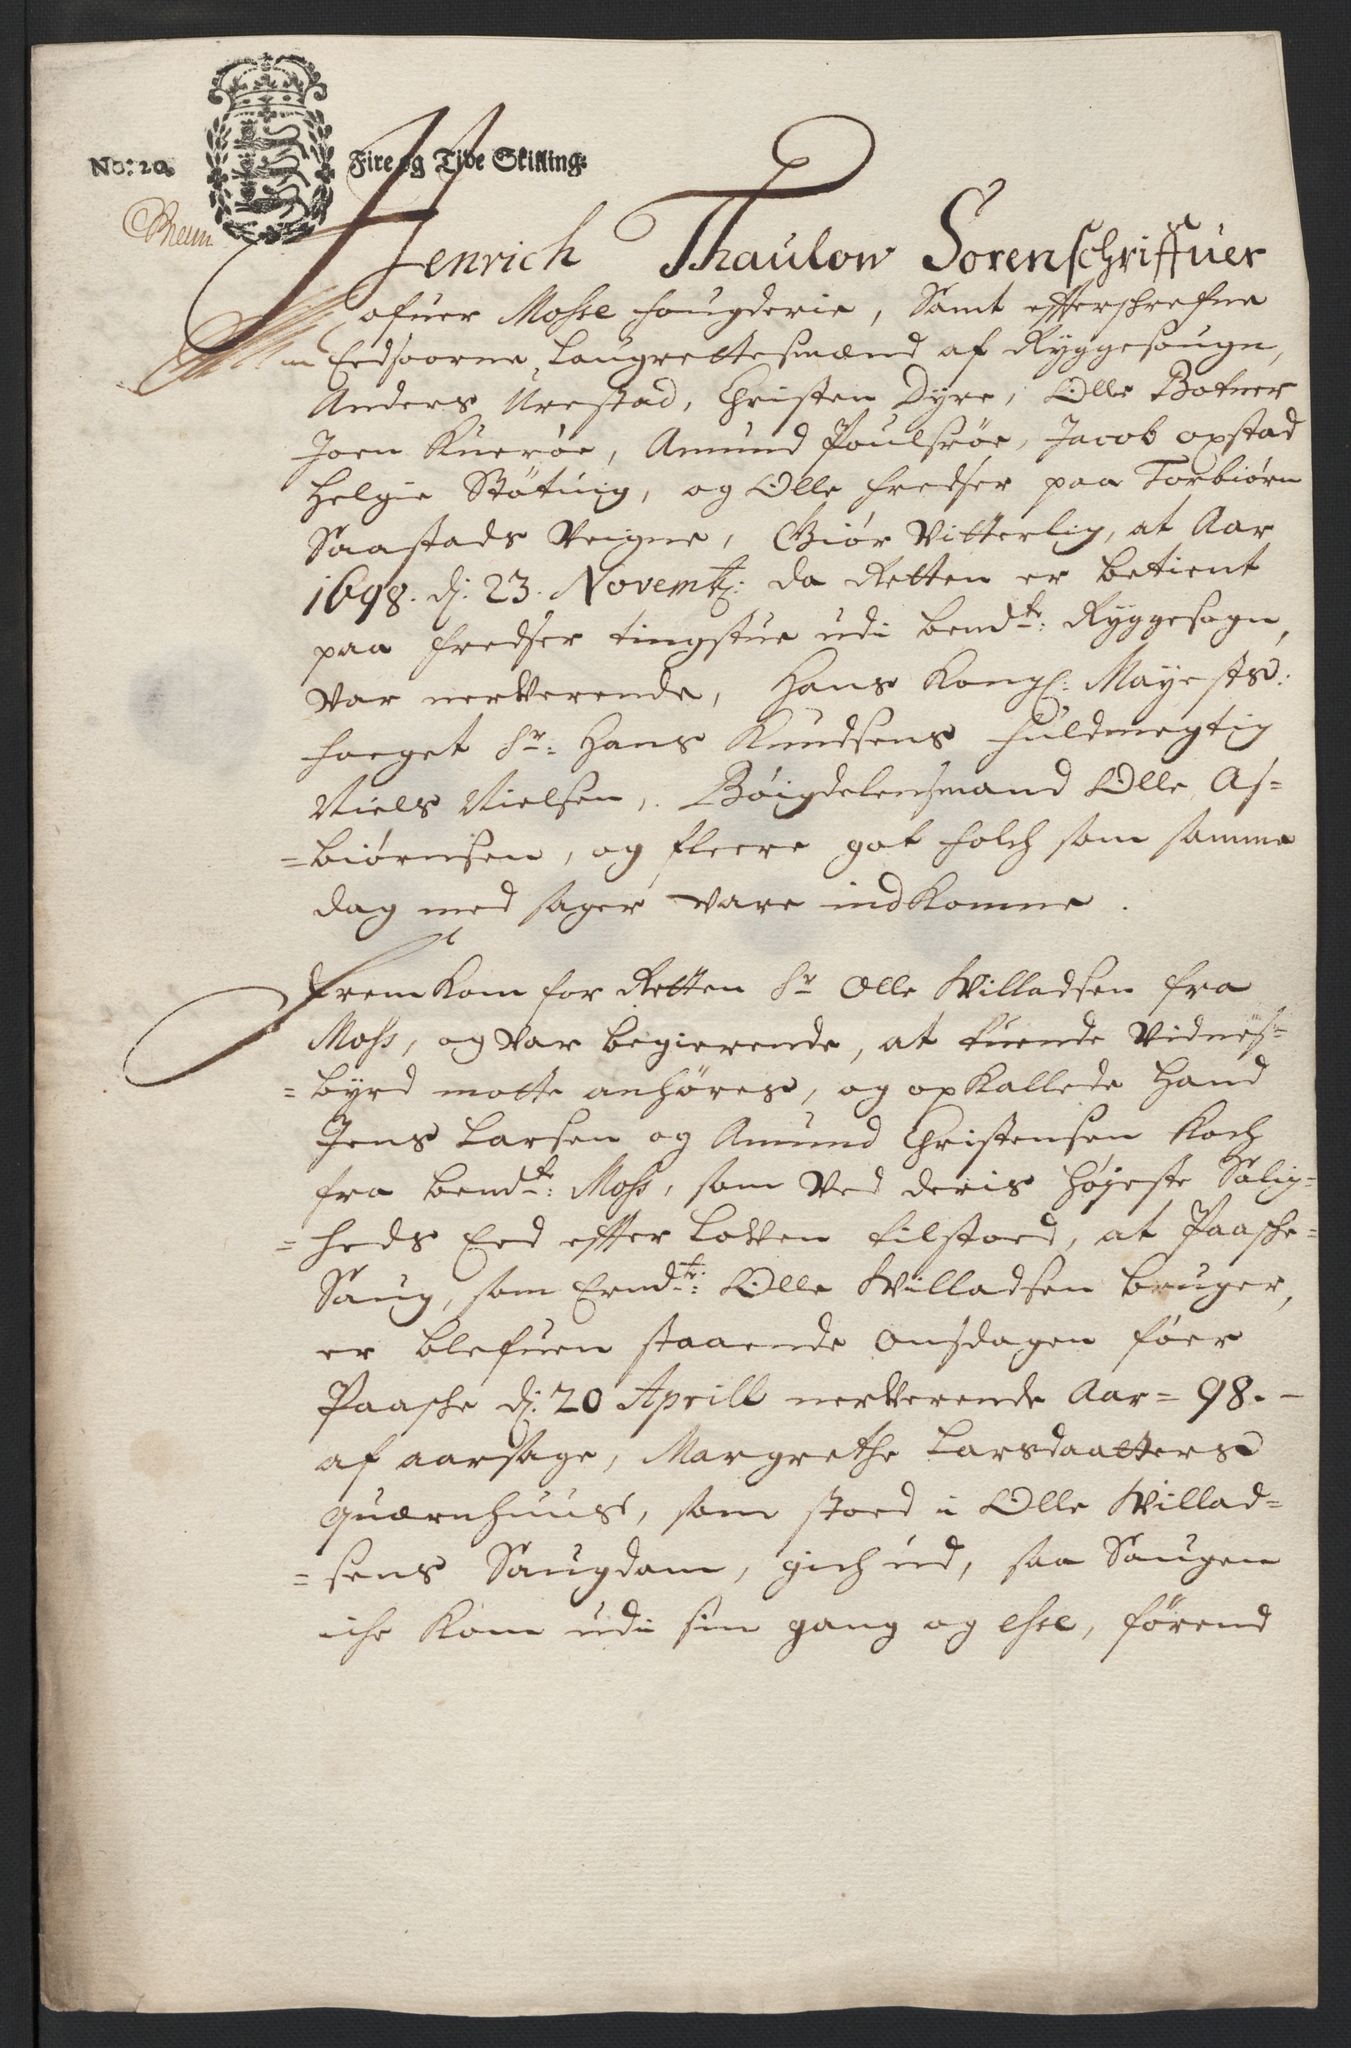 No: 20.
Fire og Tive Skilling:
Henrich Thaulow Sorenschriffuer
ofuer Mosse fougderie, Samt effterschrefne
Eedsoorne Laugrettesmænd af Ryggesougn,
Anders Urestad, Christen Dyre, Olle Botner
Joen Kuerøe, Amund Poulsrøe, Jacob opstad
Helgie Støtuig, og Olle fredser paa Torbiørn
Saastads Veigne, Giør Vitterlig, at Aar
1698. d: 23. Novemb: da Retten er betient
paa fredser tingstue udi bemdte: Ryggesogn,
var nerverende, Hans Kongl: Mayests:
foeget Sr: Hans Knudsens fuldmegtig
Niels Nielsen, Bøigdelensmand Olle As=
=biørnsen, og fleere got folch som samme
dag med sager vare indkomne.
Fremkom for Retten Sr Olle Willadsen fra
Moss, og var begierende, at tuende Vidnes=
=byrd motte anhøres, og opkallede Hand
Jens Larsen og Amund Christensen Koch
fra bemdte: Moss, som ved deris høyeste Salig=
=heds Eed effter Loven tilstoed, at Paasche=
Saug, som Ermdte: Olle Willadsen bruger,
er blefuen staaende onsdagen føer
Paasche d: 20 Aprill nerverende Aar= 98.
af aarsage, Margrethe Larsdaatters
quærnhuus, som stoed i Olle Willad=
=sens Saugdam, gich ud, saa Saugen
iche kom udi sin gang og else, førend